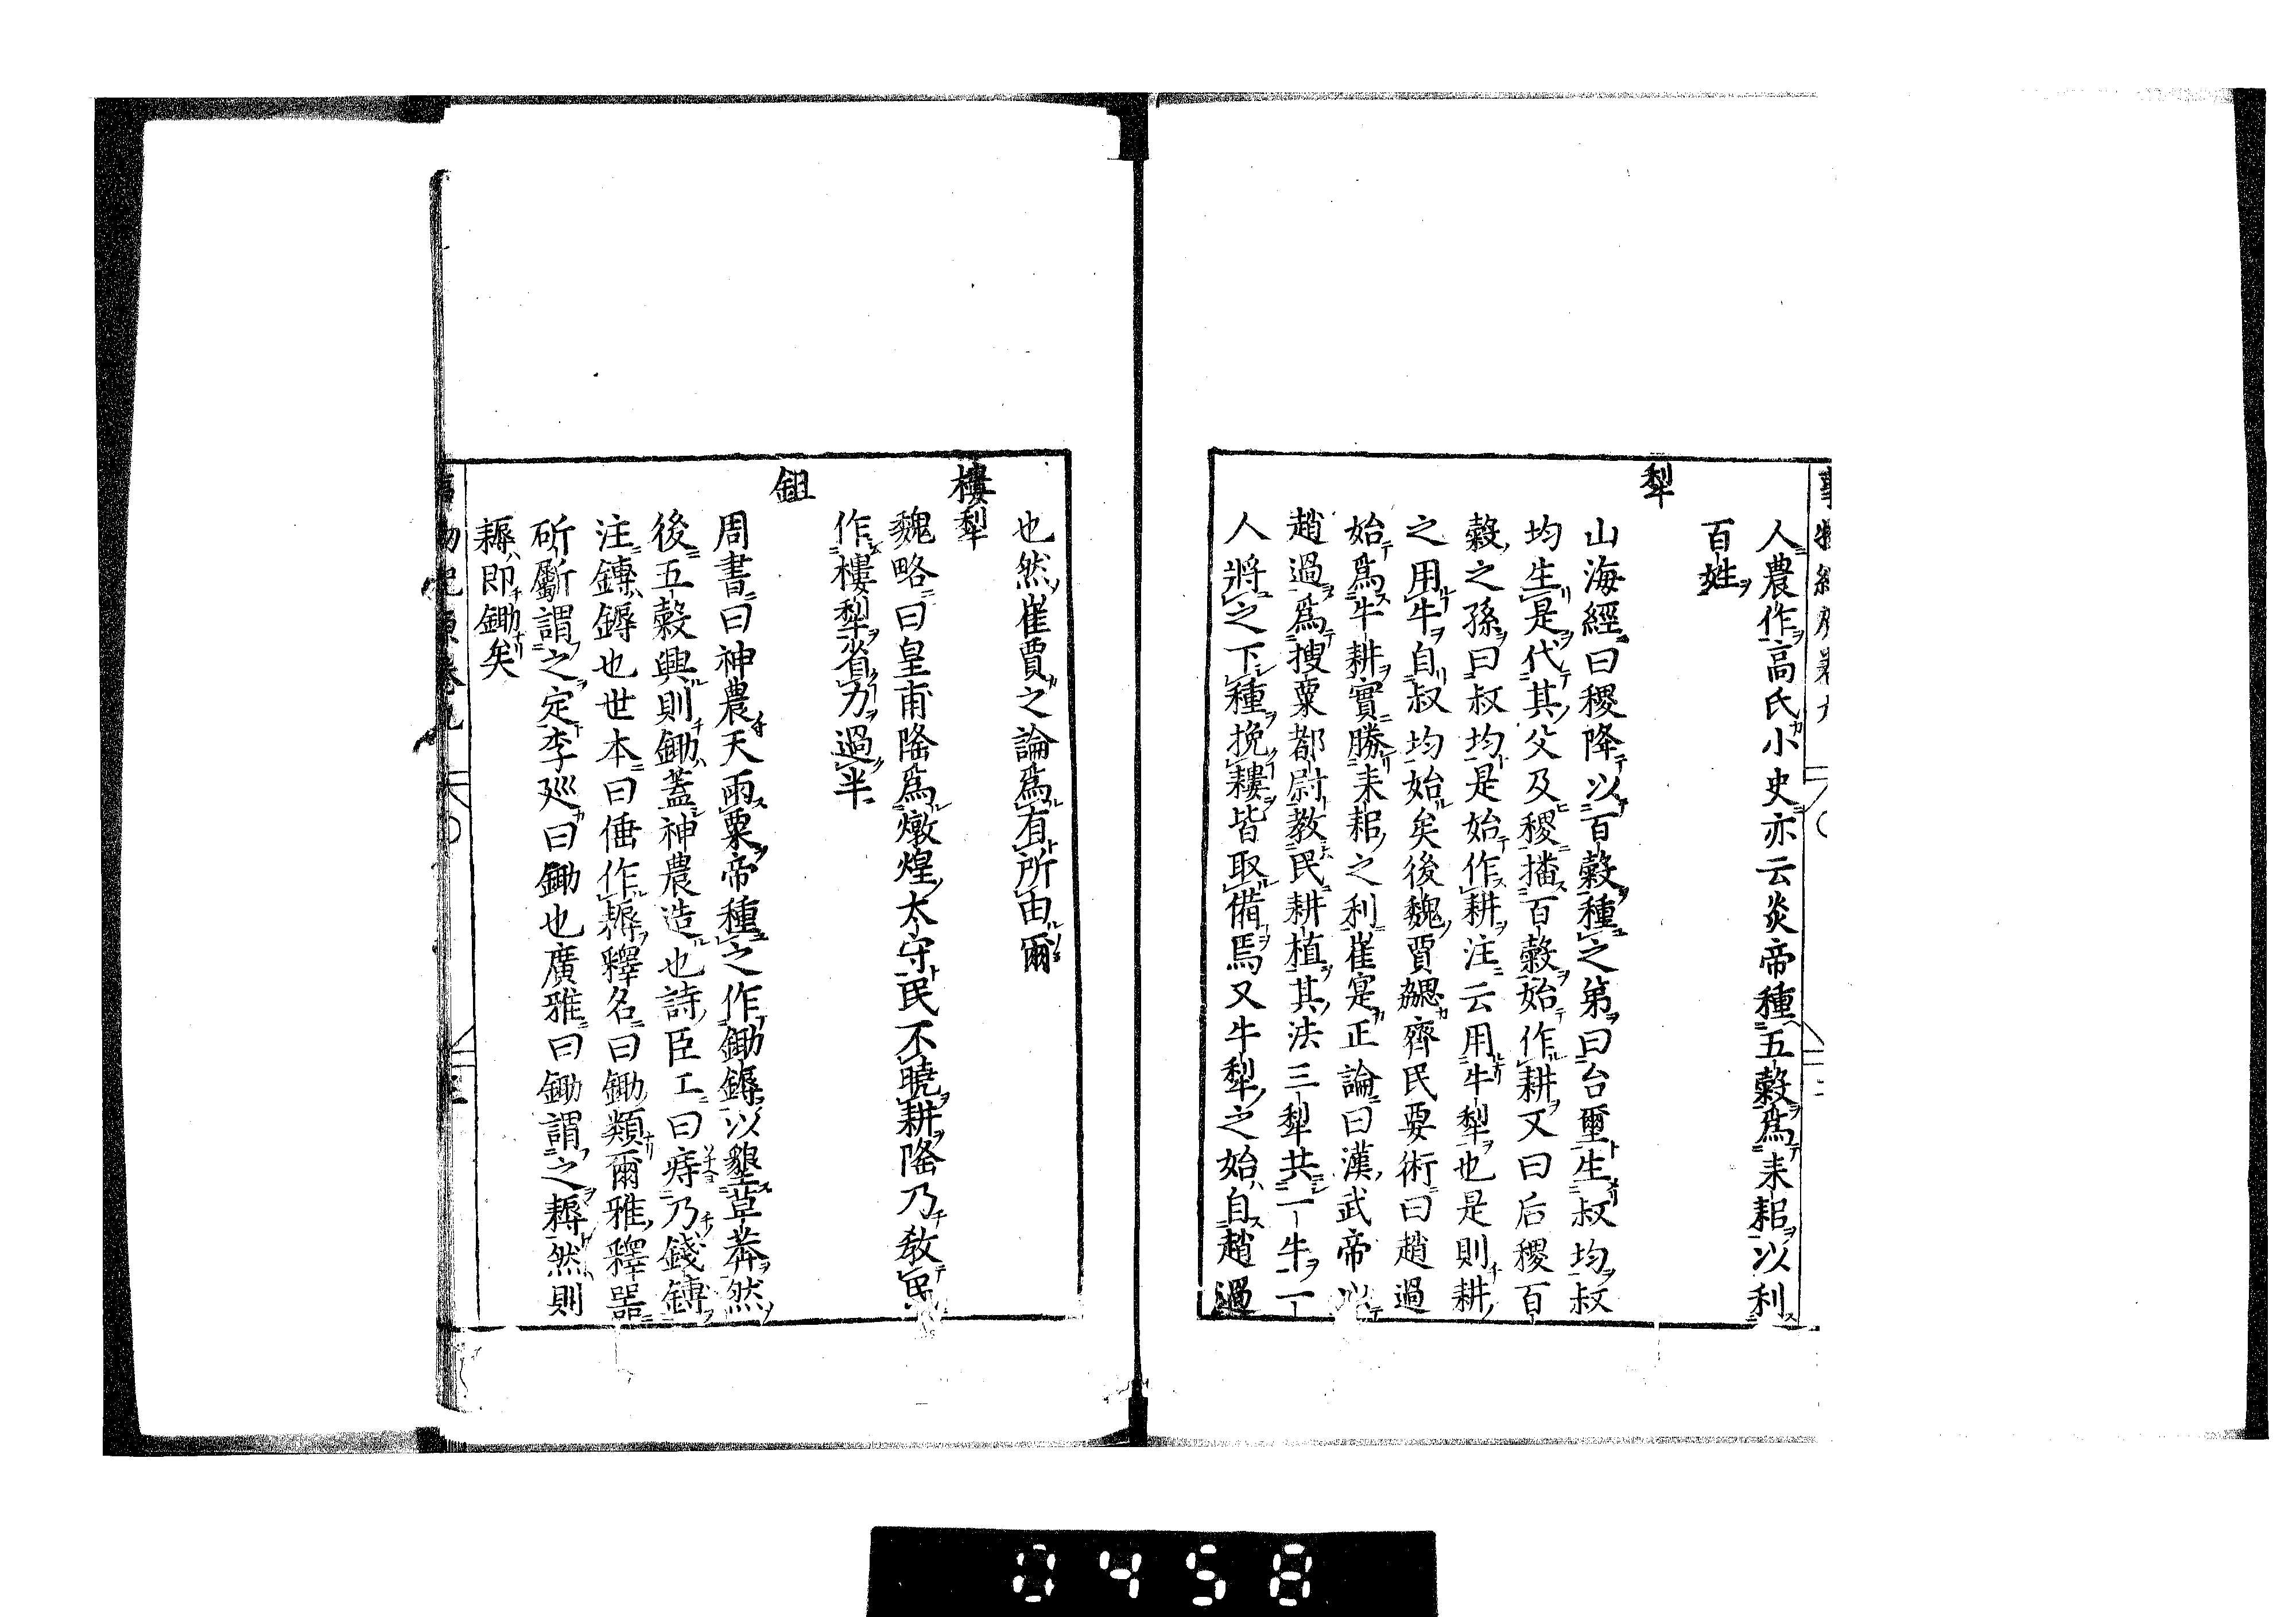 人農作高氏小史亦云炎帝種五穀爲耒耜以利
百姓
犁
山海經曰稷降以百穀稷之弟曰台璽生叔均叔
均生是代其父及稷播百穀始作耕又曰后稷百
穀之孫曰叔均是始作耕注云用牛犁也是則耕
之用牛自叔均始矣後魏賈勰齊民要術曰趙過
始爲牛耕實勝耒耜之利崔寔正論曰漢武帝以
趙過爲搜粟都尉教民耕植其法三犁共一牛一
人將之下種挽耬皆取備焉又牛犁之始自趙過
也然崔賈之論爲有所由爾
樓犁
魏略曰皇甫隆爲燉煌太守民不曉耕隆乃教民
作樓犁省力過半
鉏
周書曰神農天雨粟帝種之作鋤鎒以墾草莽然
後五穀興則鋤蓋神農造也詩臣工曰庤乃錢鎛
注鎛鎒也世本曰倕作耨釋名曰鋤類爾雅釋器
斫斸謂之定李廵曰鋤也廣雅曰鋤謂之耨然則
耨即鋤矣
0458